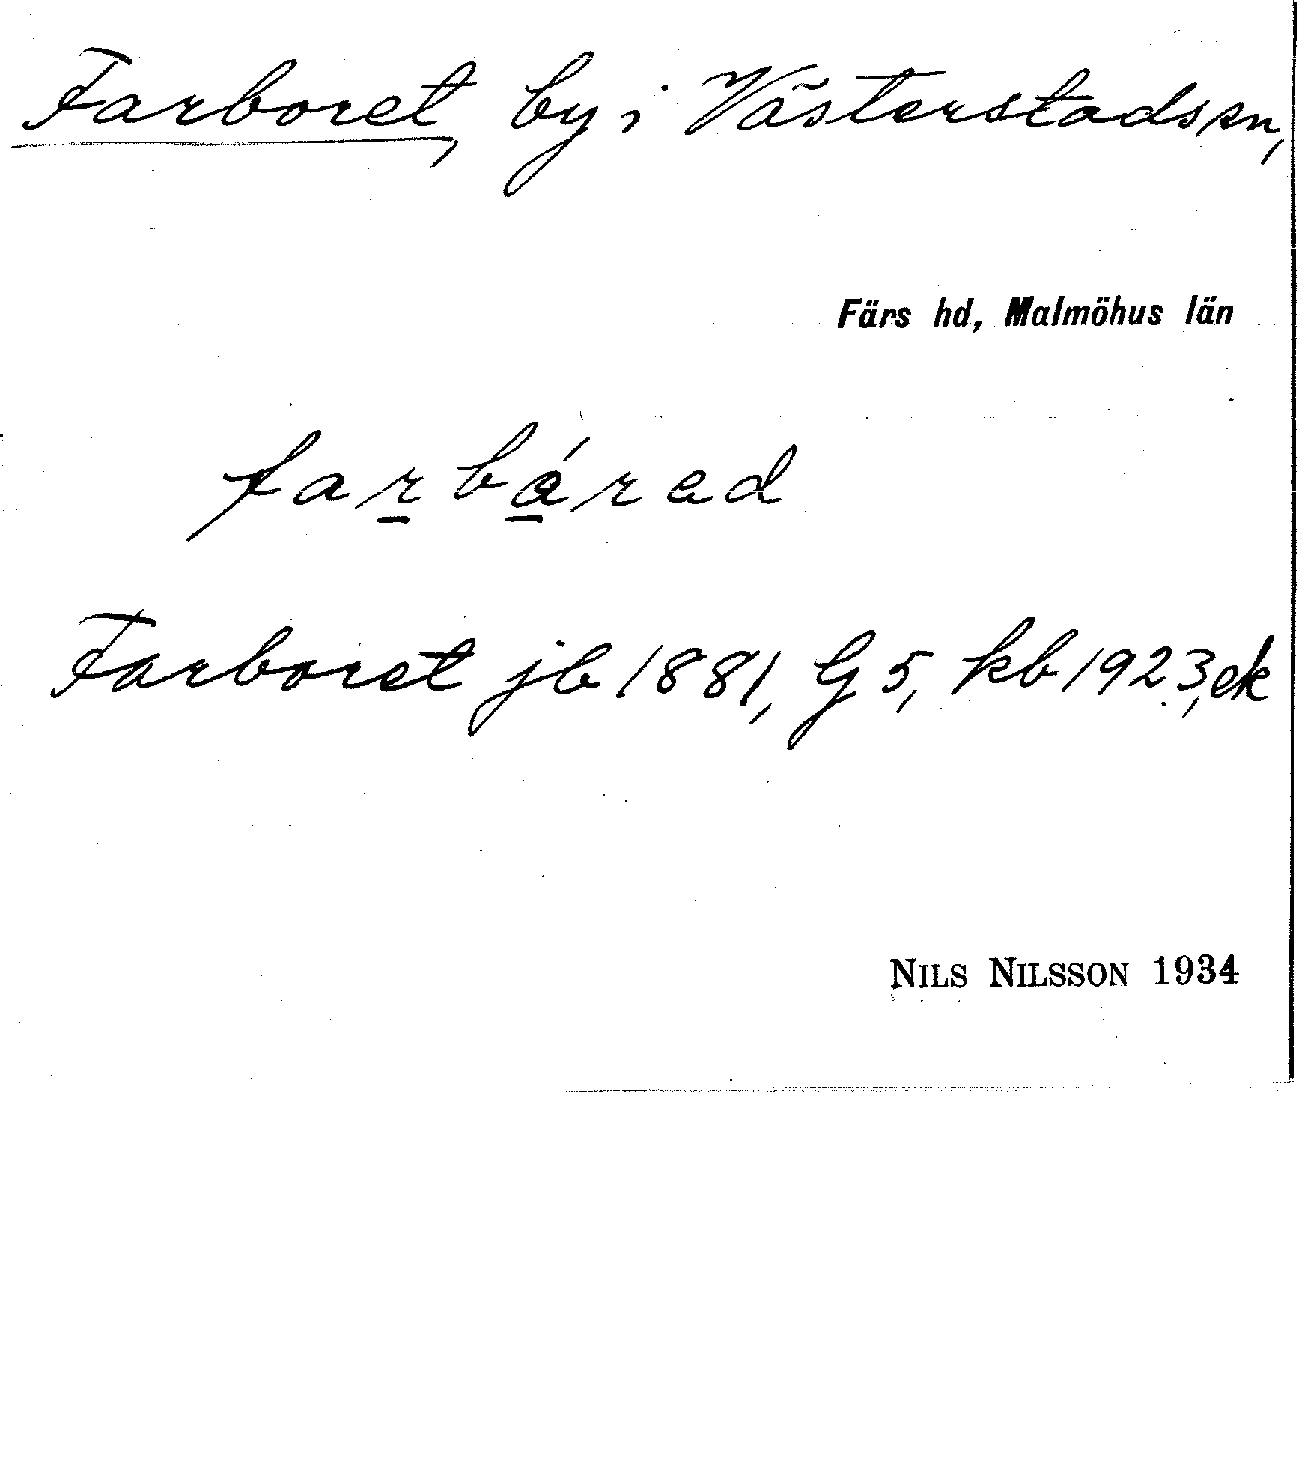 Farboret, by i Västerstads sn,
Färs hd, Malmöhus län
farbárad
Farboret jb 1881, G 5, kb 1923, ek
NILS NILSSON 1934